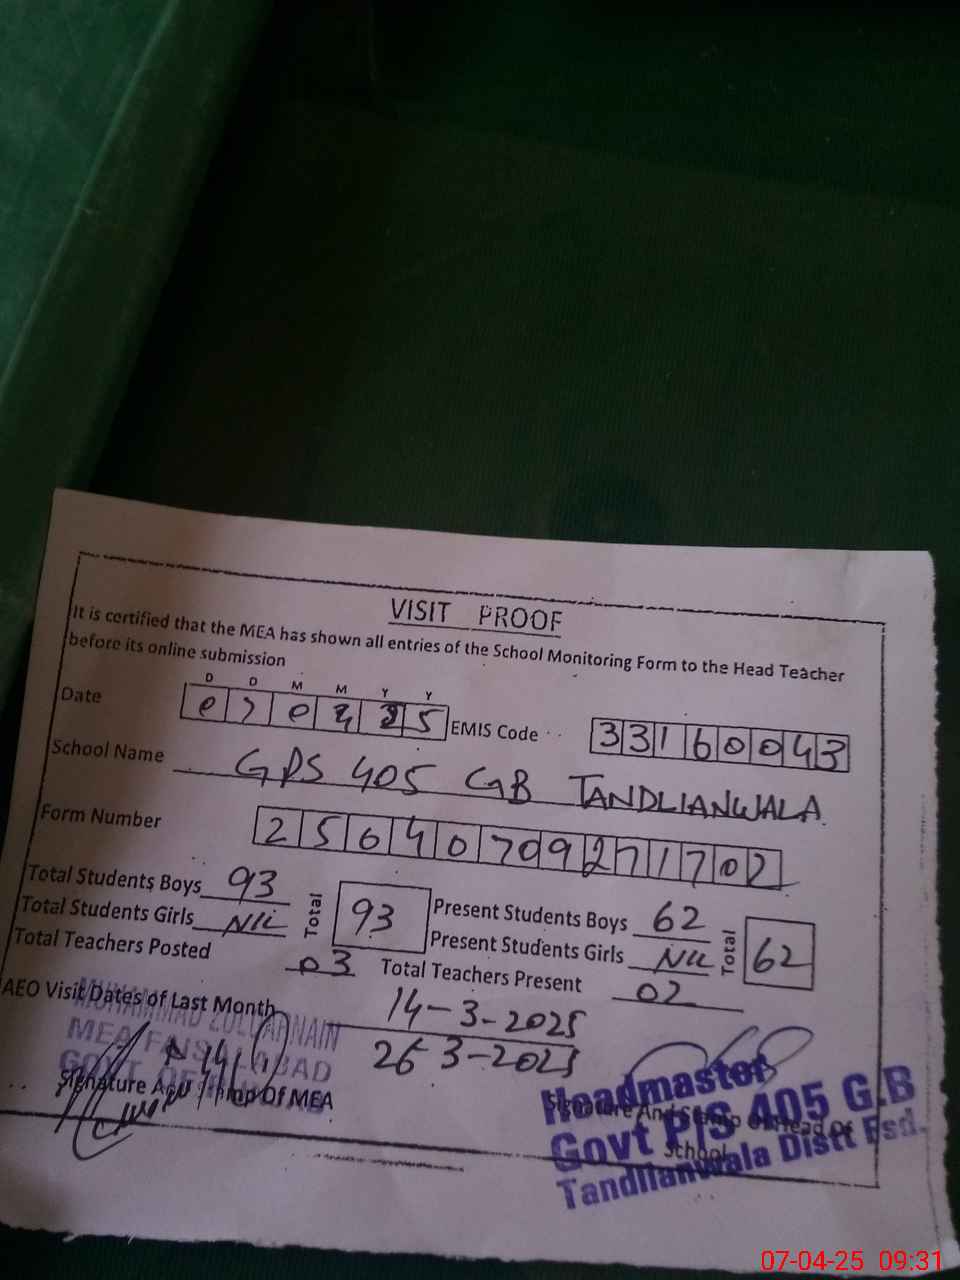 VISIT PROOF
It is certified that the MEA has shown all entries of the School Monitoring Form to the Head Teacher
before its online submission
D D M M Y Y
Date 070425 EMIS Code 33160043
School Name GPS 405 GB TANDLIANWALA
Form Number 2564070927 1702
Total Students Boys 93 Total 93 Present Students Boys 62 Total 62
Total Students Girls Nil Present Students Girls Nil
Total Teachers Posted 03 Total Teachers Present 02
AEO Visit Dates of Last Month 14-3-2025
26-3-2025
MUHAMMAD ZULQARNAIN
MEA FAISALABAD
GOVT OF
Signature And Stamp Of MEA
Signature And Stamp Of Head Of
School
Headmaster
Govt P/S 405 G.B
Tandlianwala Distt Fsd.
07-04-25 09:31